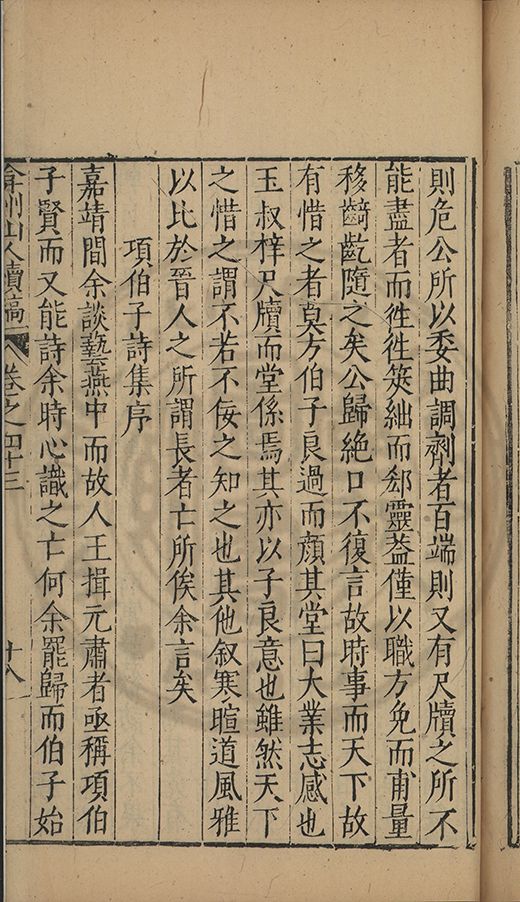 則危公所以委曲調劑者百端則又有尺牘之所不
能盡者而徃徃筴絀而郄靈蓋僅以職方免而甫量
移齮齕隨之矣公歸絶口不復言故時事而天下故
有惜之者莫方伯子良過而顔其堂曰大業志感也
玉叔梓尺牘而堂係焉其亦以子良意也雖然天下
之惜之謂不若不佞之知之也其他叙寒暄道風雅
以比於晉人之所謂長者亡所俟余言矣
項伯子詩集序
嘉靖間余談藝燕中而故人王揖元肅者亟稱項伯
子賢而又能詩余時心識之亡何余罷歸而伯子始
弇州山人續稿 卷之四十三 十八